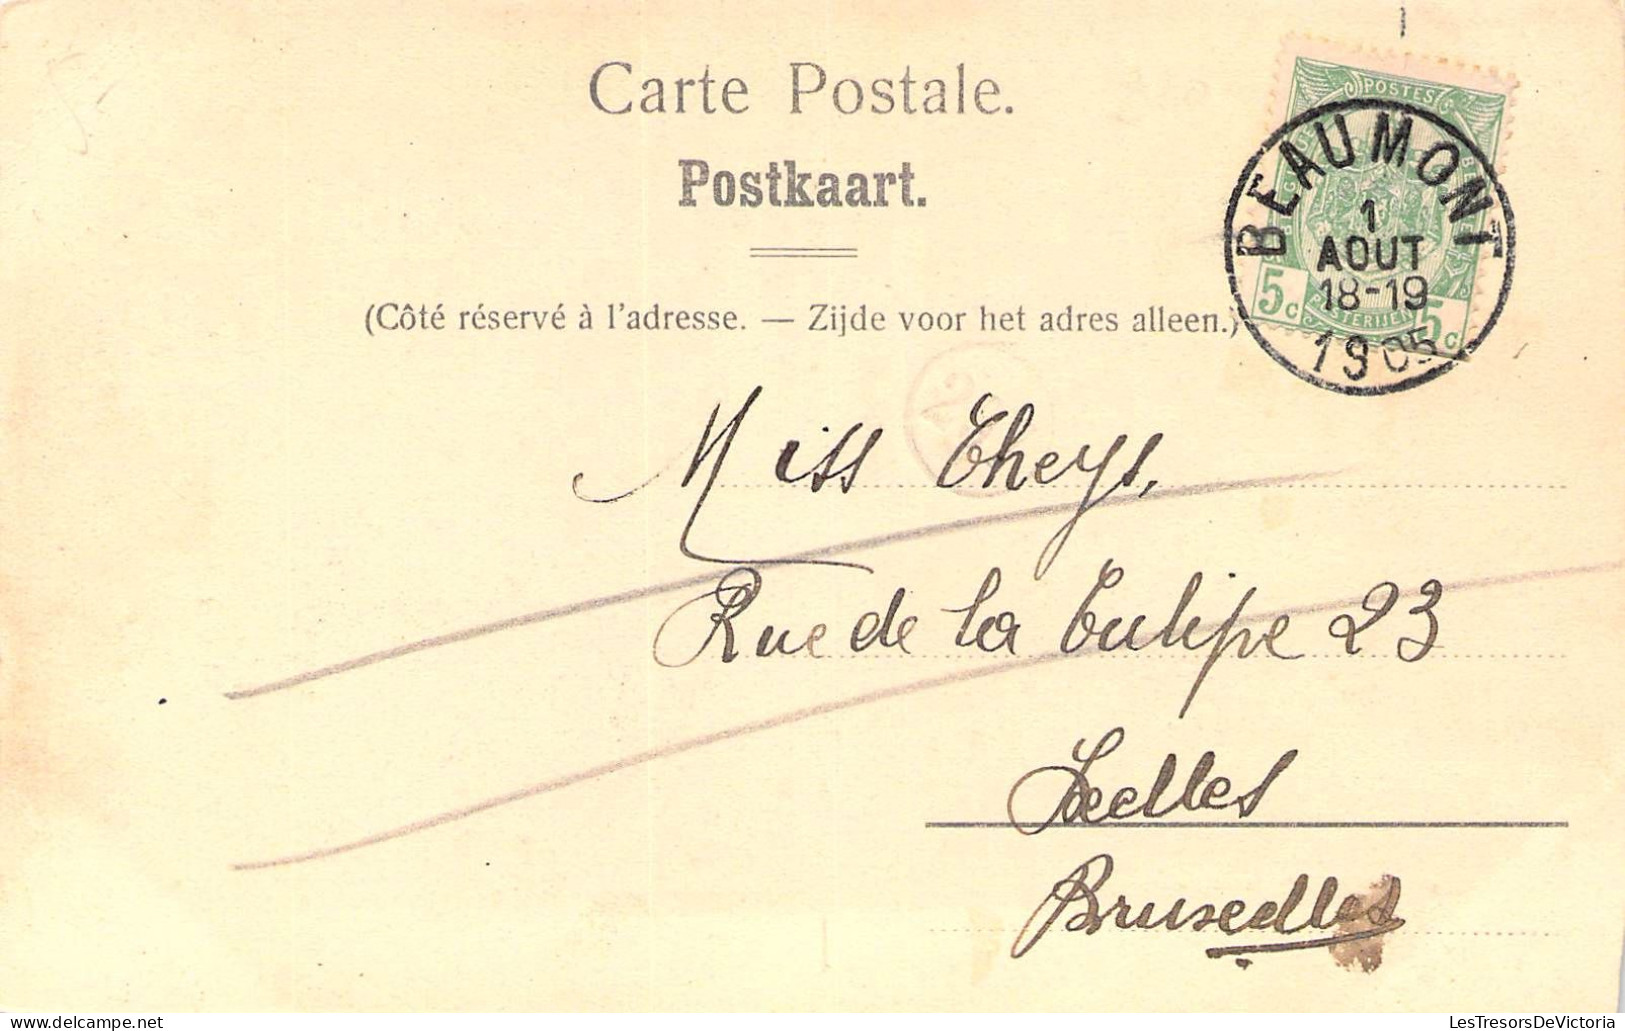 Carte Postale.
Postkaart.
(Côté réservé à l'adresse. — Zijde voor het adres alleen.)
POSTES
5c 5c
POSTERIJEN
BEAUMONT
1
AOUT
18-19
1905
Miss Theys,
Rue de la Tulipe 23
Ixelles
Bruxelles
LesTresorsDeVictoria